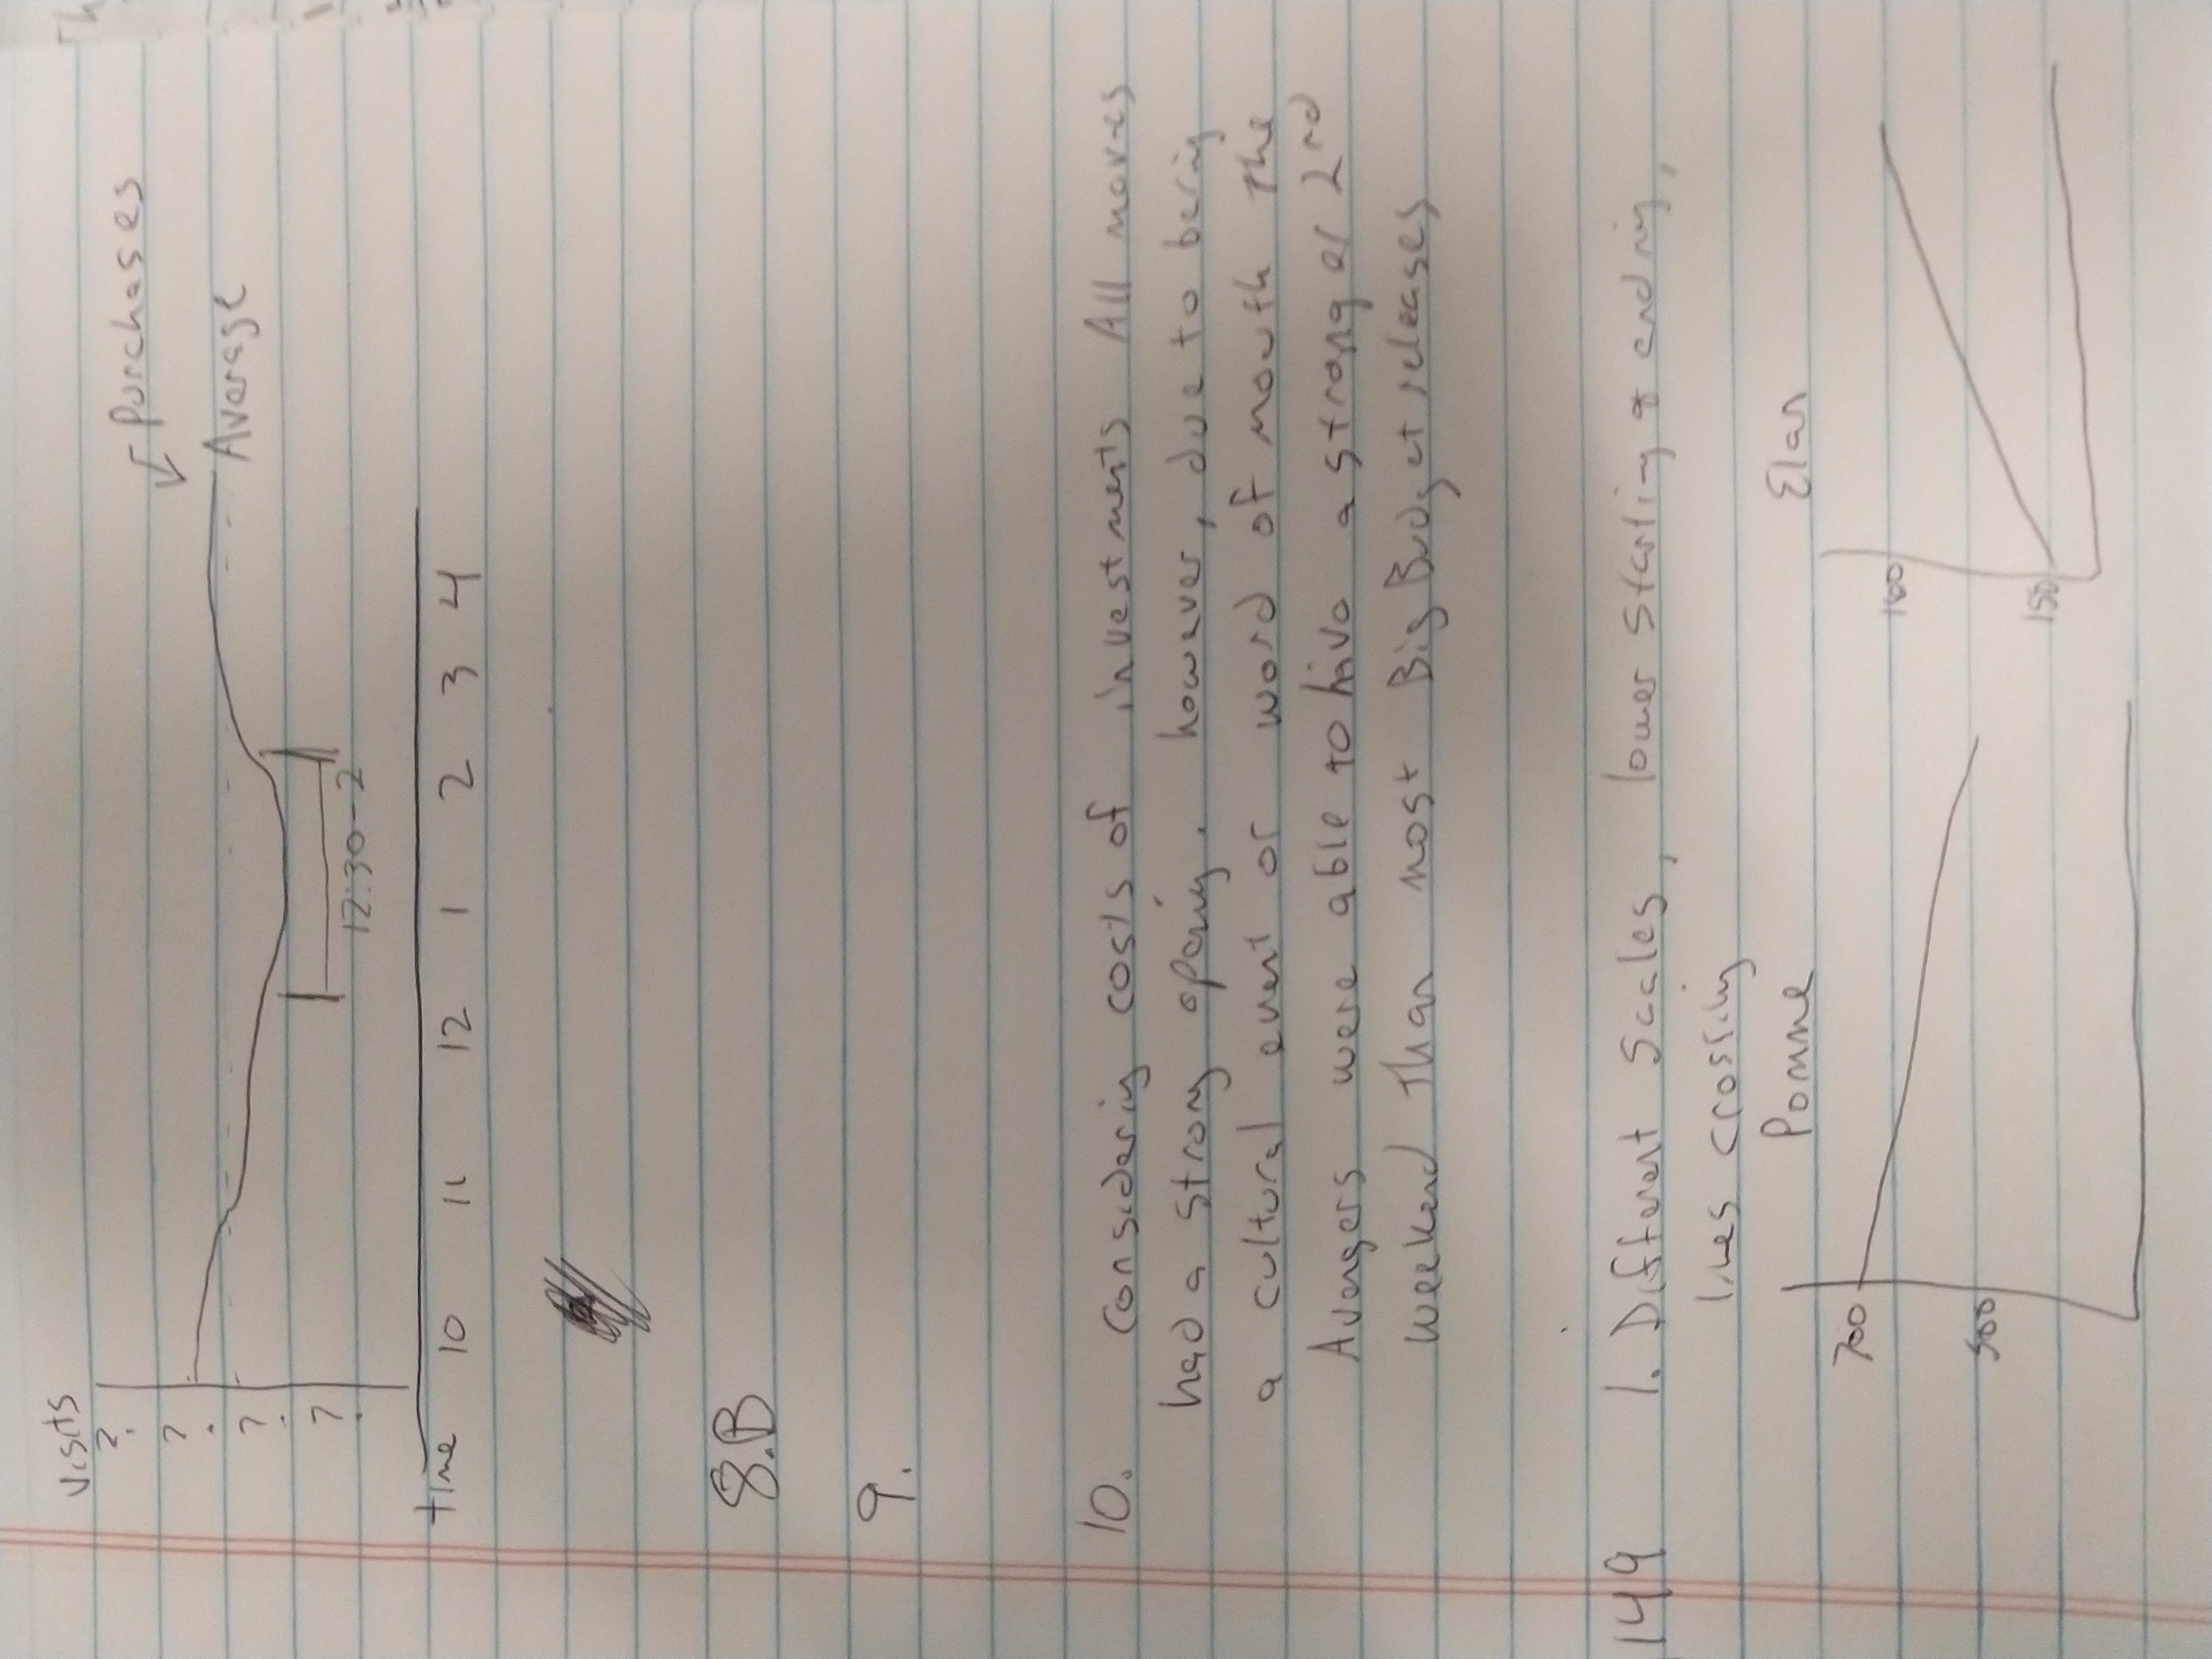 Visits
?
?
?
?
← Purchases
Average
12:30-2
Time 10 11 12 1 2 3 4
8.B
9.
10. Considering costs of investments All movies
had a strong opening. however, due to being
a cultural event or word of mouth the
Avengers were able to have a stronger 2nd
weekend than most Big Budget releases
149 1. Different Scales, lower starting & ending,
lines crossing
Pomme Elan
700
500
160
150